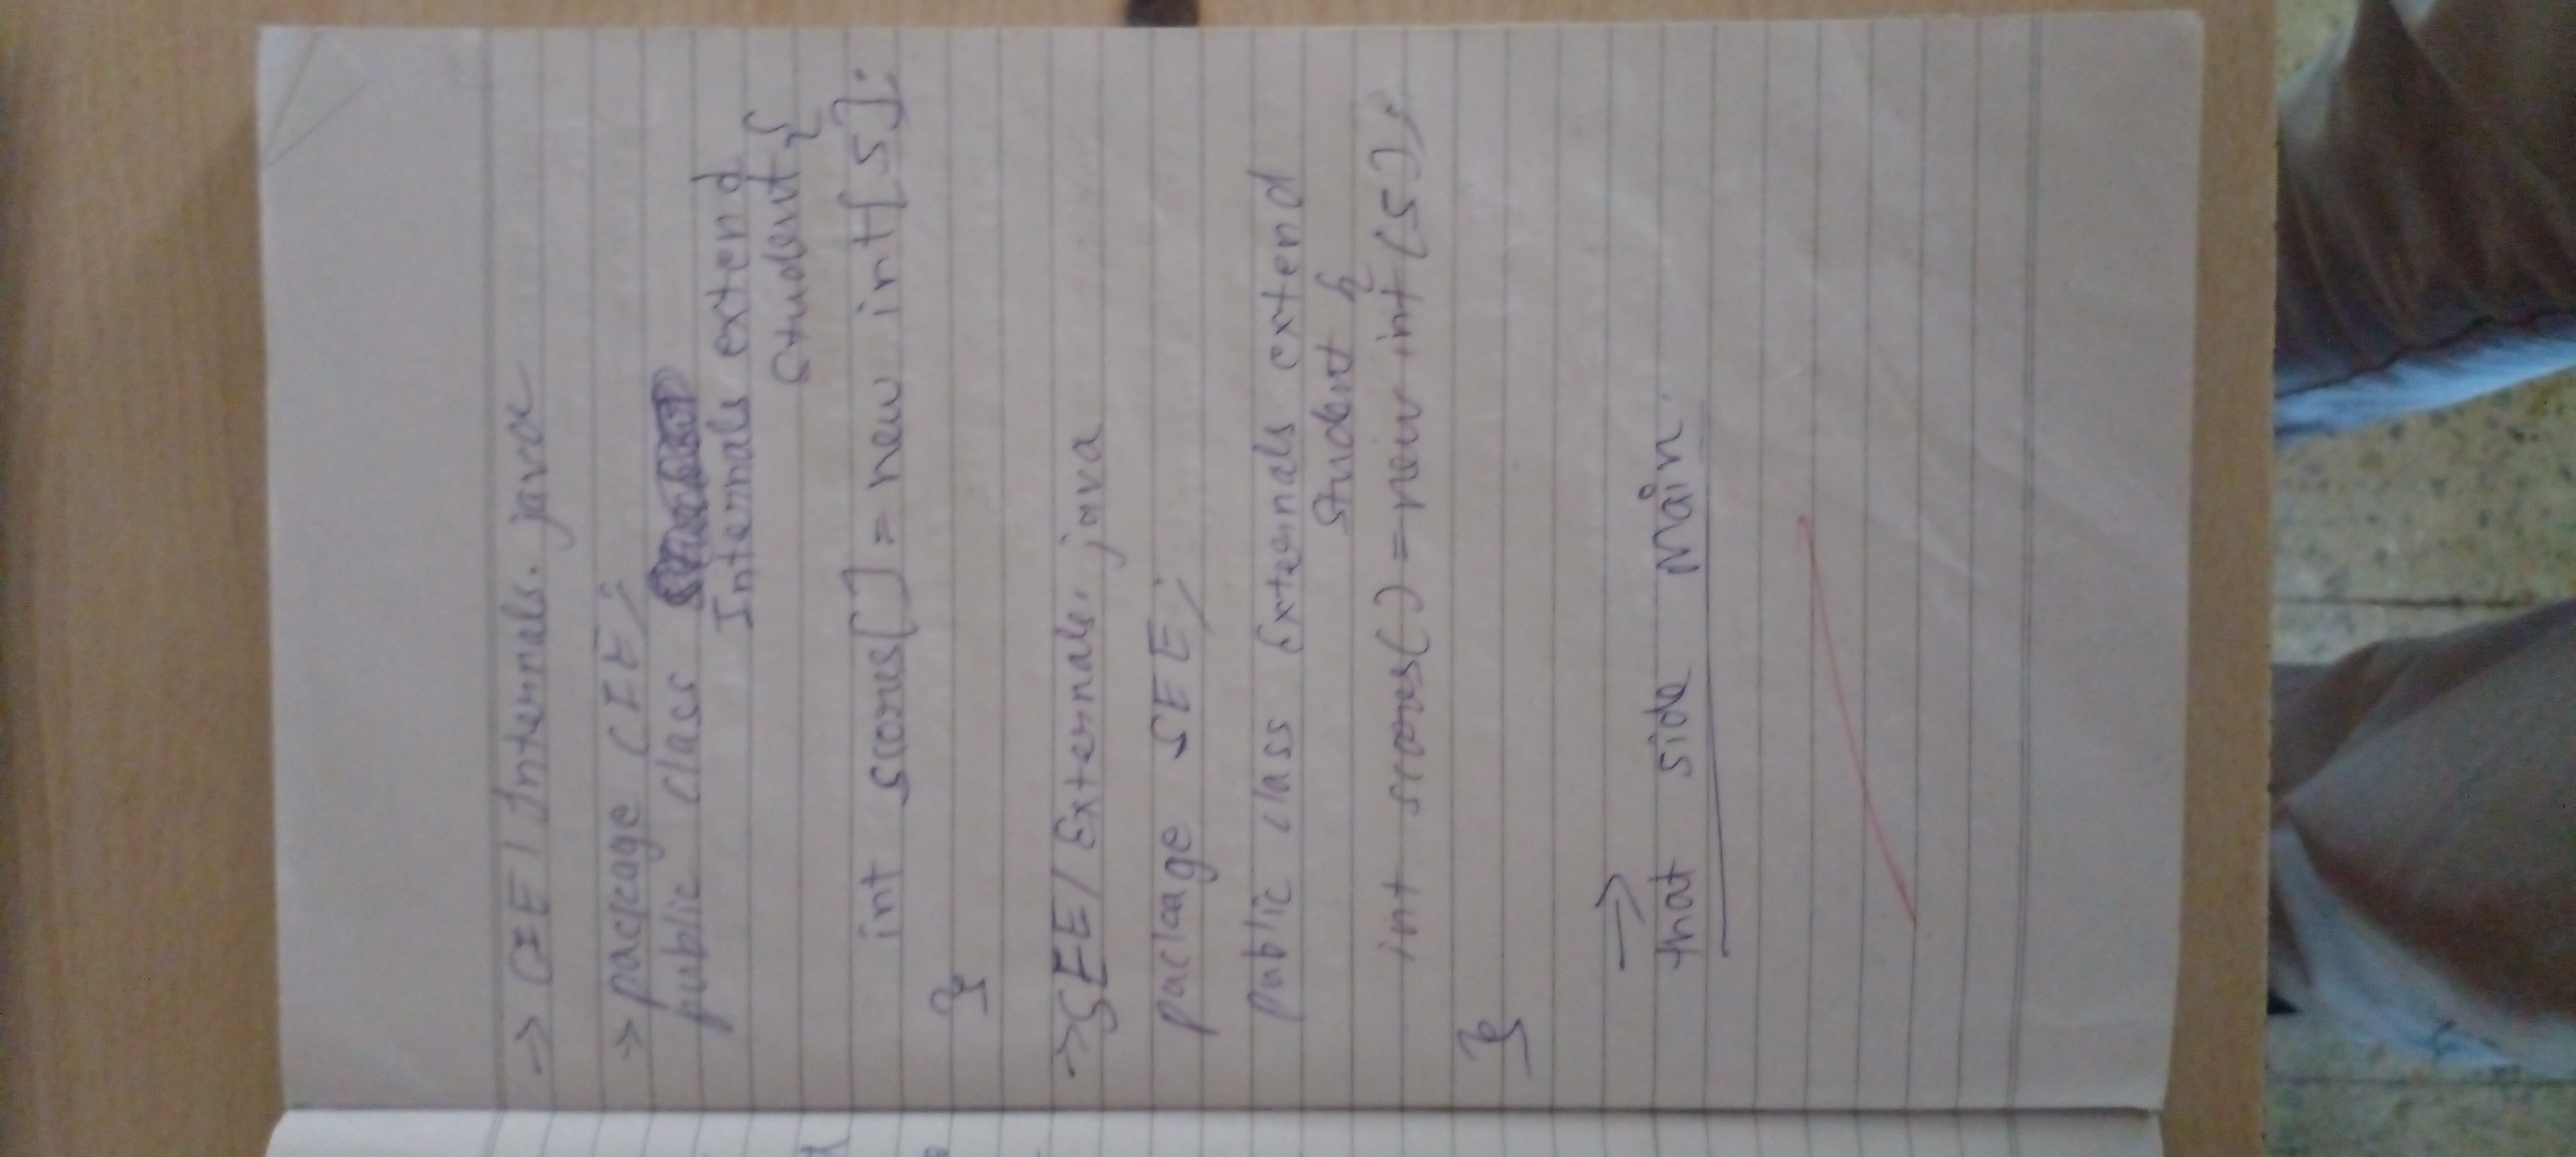 -> CIE / Internals. java
-> package CIE;
public class
Internals extend
Student {
int scores[] = new int[5];
}
-> SEE / Externals. java
package SEE;
public class Externals extend
Student {
int scores() = new int (5);
}
->
that side main.